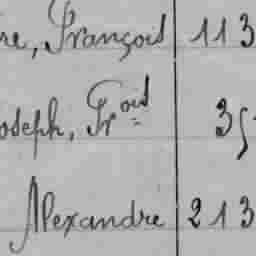 re, François 113
oseph, Fr^ois 35
Alexandre 213